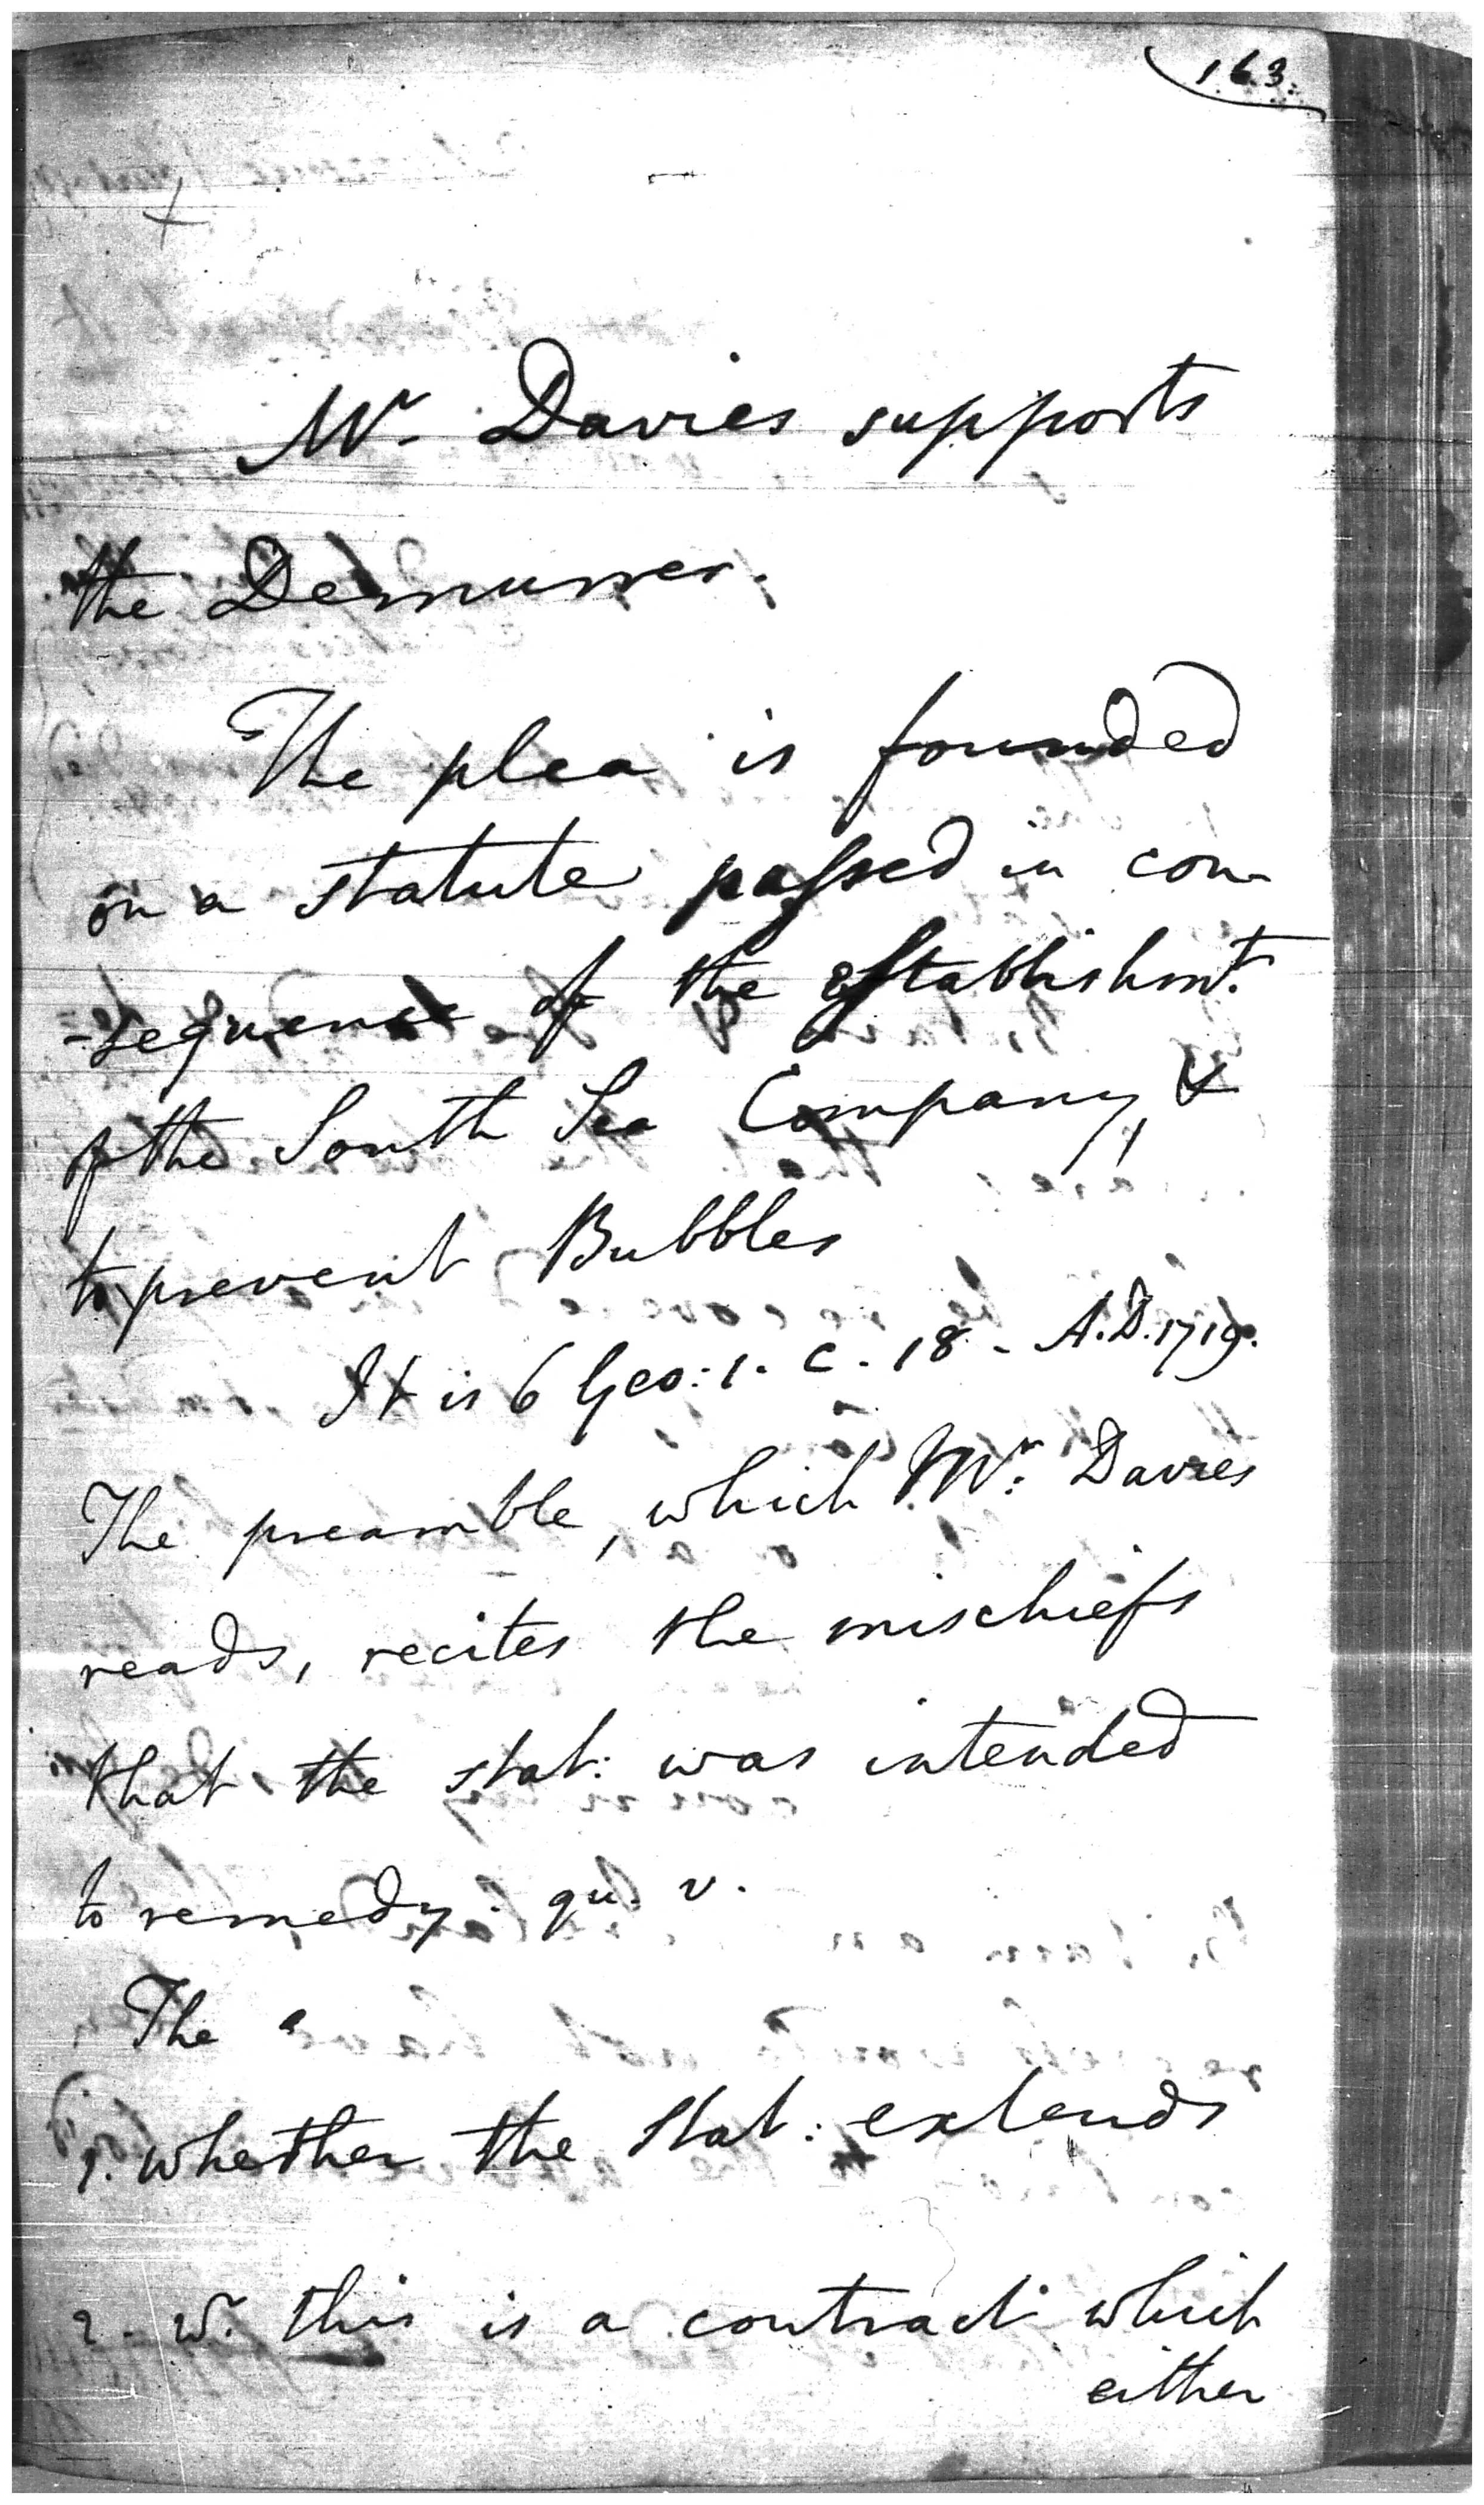 163.
Mr. Davies supports
the Demurrer.
The plea is founded
on a statute passed in con-
-sequence of the establishmt.
of the South Sea Company, &
to prevent Bubbles
It is 6 Geo: 1. c. 18 - A.D. 1719.
The preamble, which Mr. Davies
reads, recites the mischiefs
that the stat: was intended
to remedy. qu. v.
The
1. whether the stat: extends
2. wr. this is a contract which
either